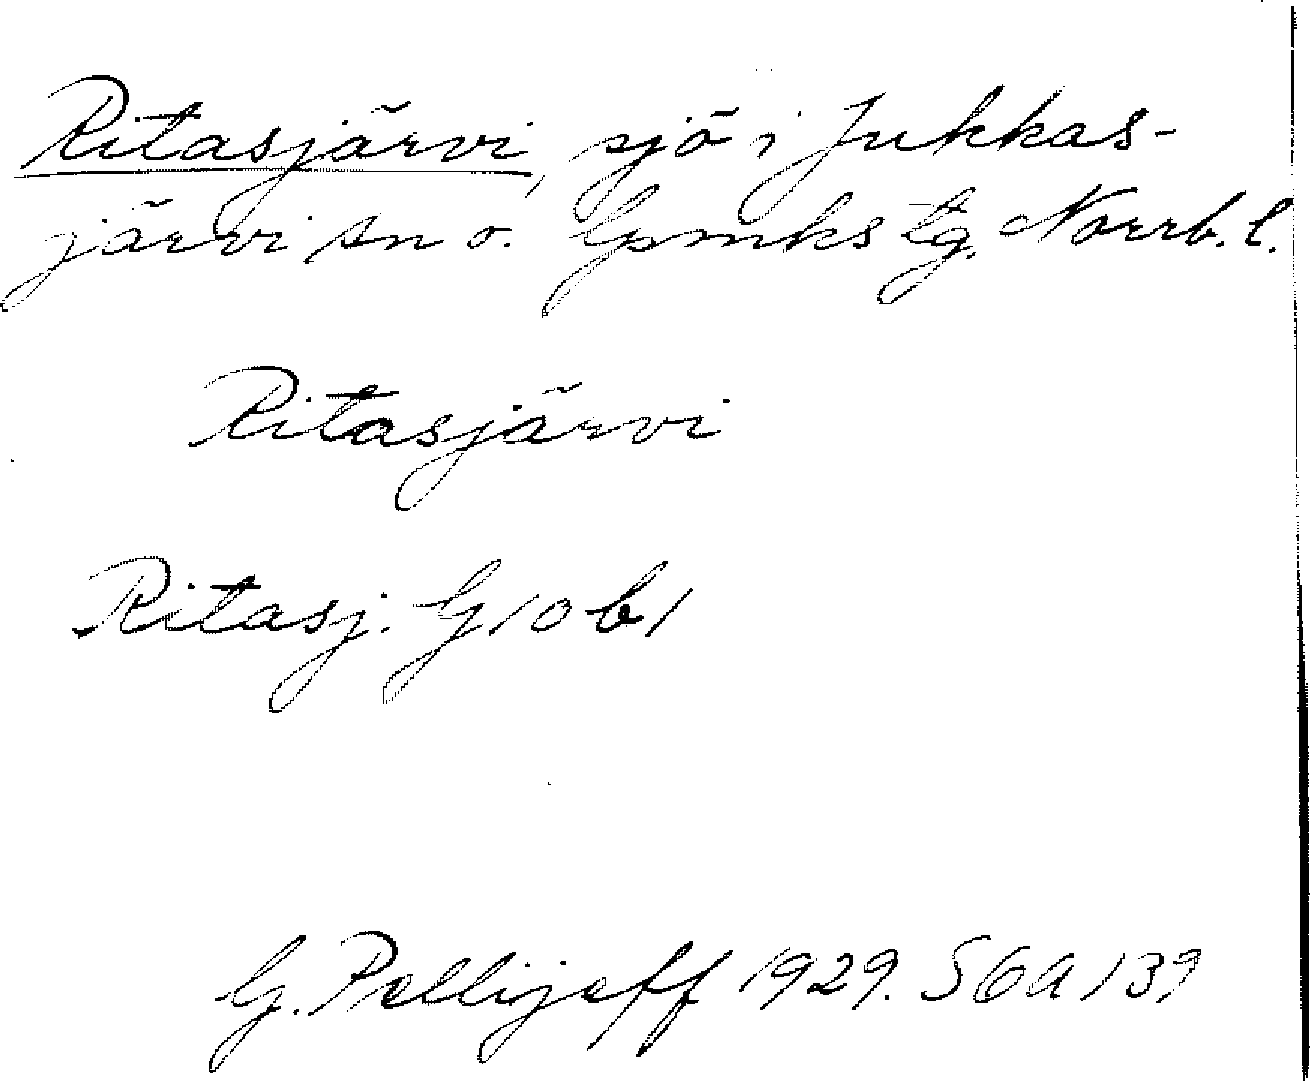 Ritasjärvi, sjö i Jukkas-
järvi sn o. Gpmks tg. Norrb. l.
Ritasjärvi
Ritasj. G 10 b 1
G. Pellijeff 1929. SGA 139